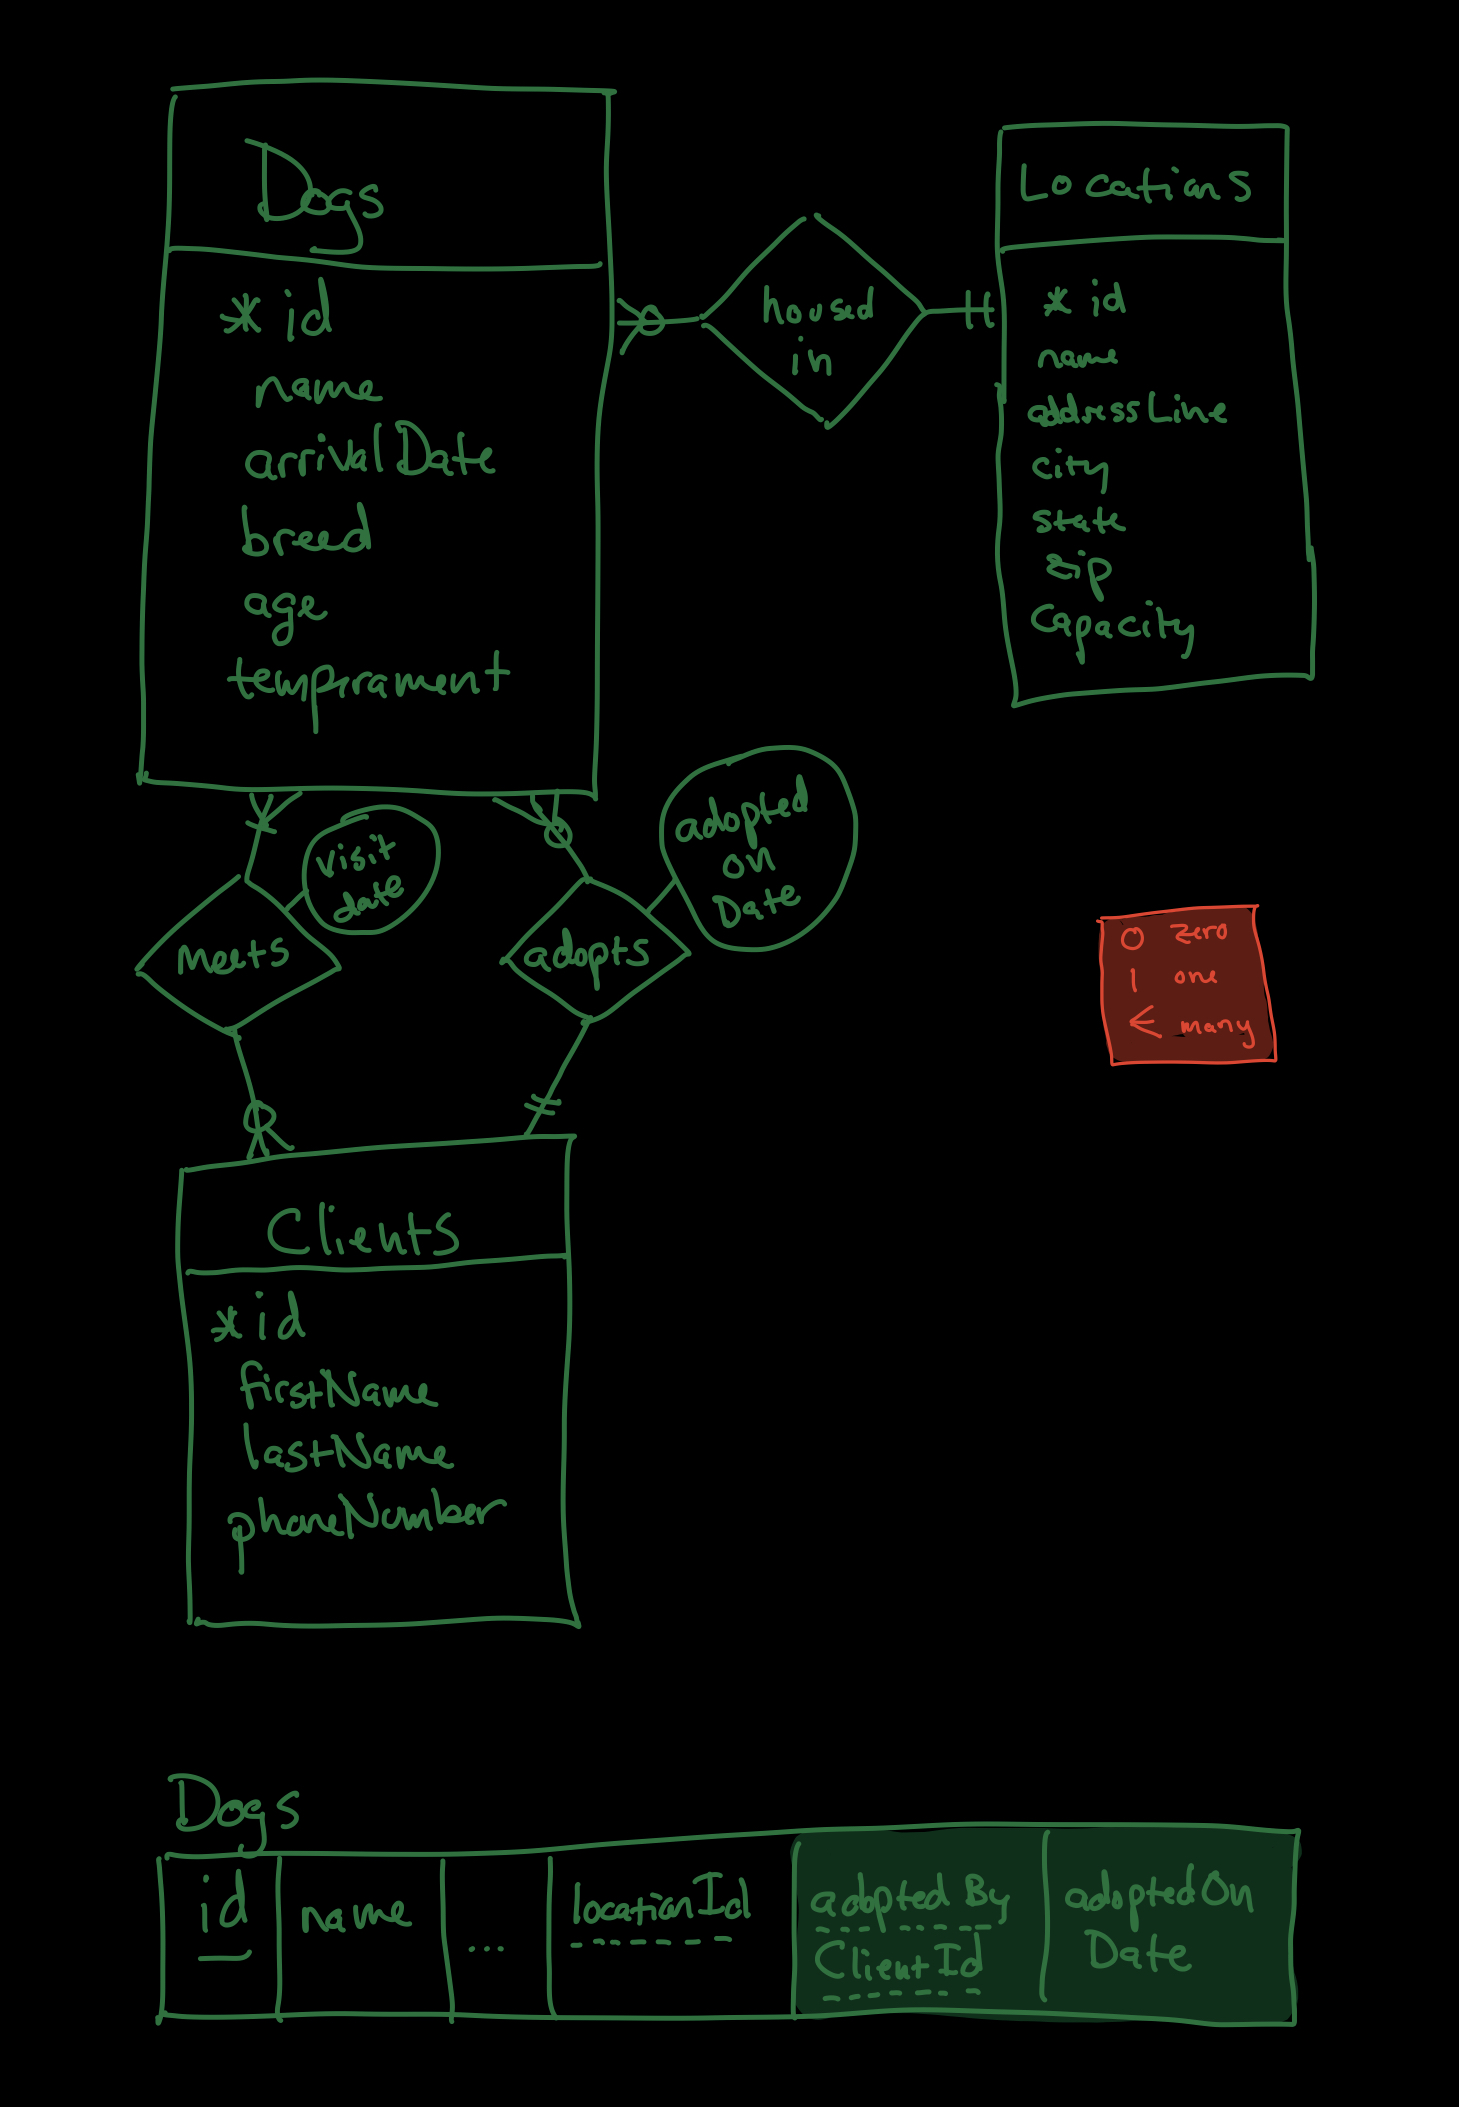 Dogs
* id
name
arrivalDate
breed
age
temprament
housed
in
Locations
* id
name
addressLine
city
state
zip
capacity
visit
date
meets
adopted
on
Date
adopts
0 zero
1 one
< many
Clients
* id
firstName
lastName
phoneNumber
Dogs
id
name
...
locationId
adopted By
ClientId
adoptedOn
Date